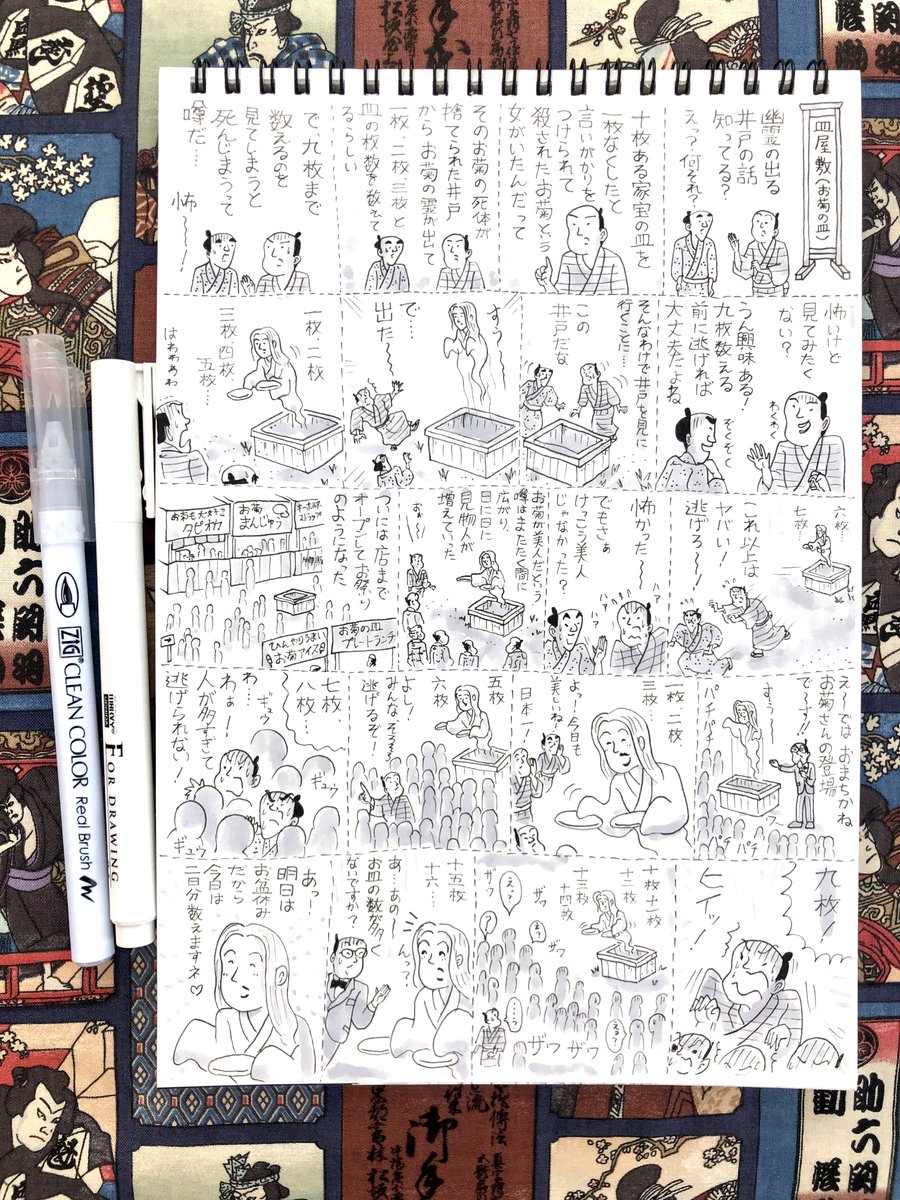 皿屋敷(お菊の皿)
幽霊の出る
井戸の話
知ってる?
えっ?何それ?
十枚ある家宝の皿を
一枚なくしたと
言いがかりを
つけられて
殺されたお菊という
女がいたんだって
そのお菊の死体が
捨てられた井戸
からお菊の霊が出て
一枚、二枚 三枚と
皿の枚数を数えて
るらしい
で九枚まで
数えるのを
見てしまうと
死んじまうって
噂だ…
怖〜〜
怖いけど
見てみたく
ない?
うん興味ある!
九枚数える
前に逃げれば
大丈夫だよね
わくわく
ぞくぞく
そんなわけで井戸を見に
行くことに…
この
井戸だな
すぅ〜
で…
出た〜
一枚、二枚
三枚、四枚
五枚…
はわわわわ
六枚…
七枚…
これ以上は
ヤバい!
逃げろ〜!
怖かった〜
でもさぁ
けっこう美人
じゃなかった?
お菊が美人だという
噂はまたたく間に
広がり、
日に日に
見物人が
増えていった
ついには店まで
オープンしてお祭り
のようになった
お菊も大好き
タピオカ
お菊
まんじゅう
ひんやりうまい
お菊アイス
お菊の皿
プレートランチ
え〜ではおまちかね
お菊さんの登場
で〜す!!
すぅ〜
パチパチ
パチパチ
一枚、二枚、
三枚…
よっ!今日も
美しいね
日本一!
五枚、
六枚…
よし!
みんなそろそろ
逃げるぞ!
七枚、
八枚…
わ…
わぁー!
人が多すぎて
逃げられない!
ギュウ
ギュウ
ギュウ
九枚!
ヒイッ!
十枚、十一枚
十二枚、
十三枚
十四枚
え?
え?
えっ?
ザワ
ザワ
ザワ
ザワ
十五枚
十六…
ん?
あ…あの〜
お皿の数が多く
ないですか?
あっ!
明日は
お盆休み
だから
今日は
二日分数えますネ♡
ZIG CLEAN COLOR Real Brush
FOR DRAWING